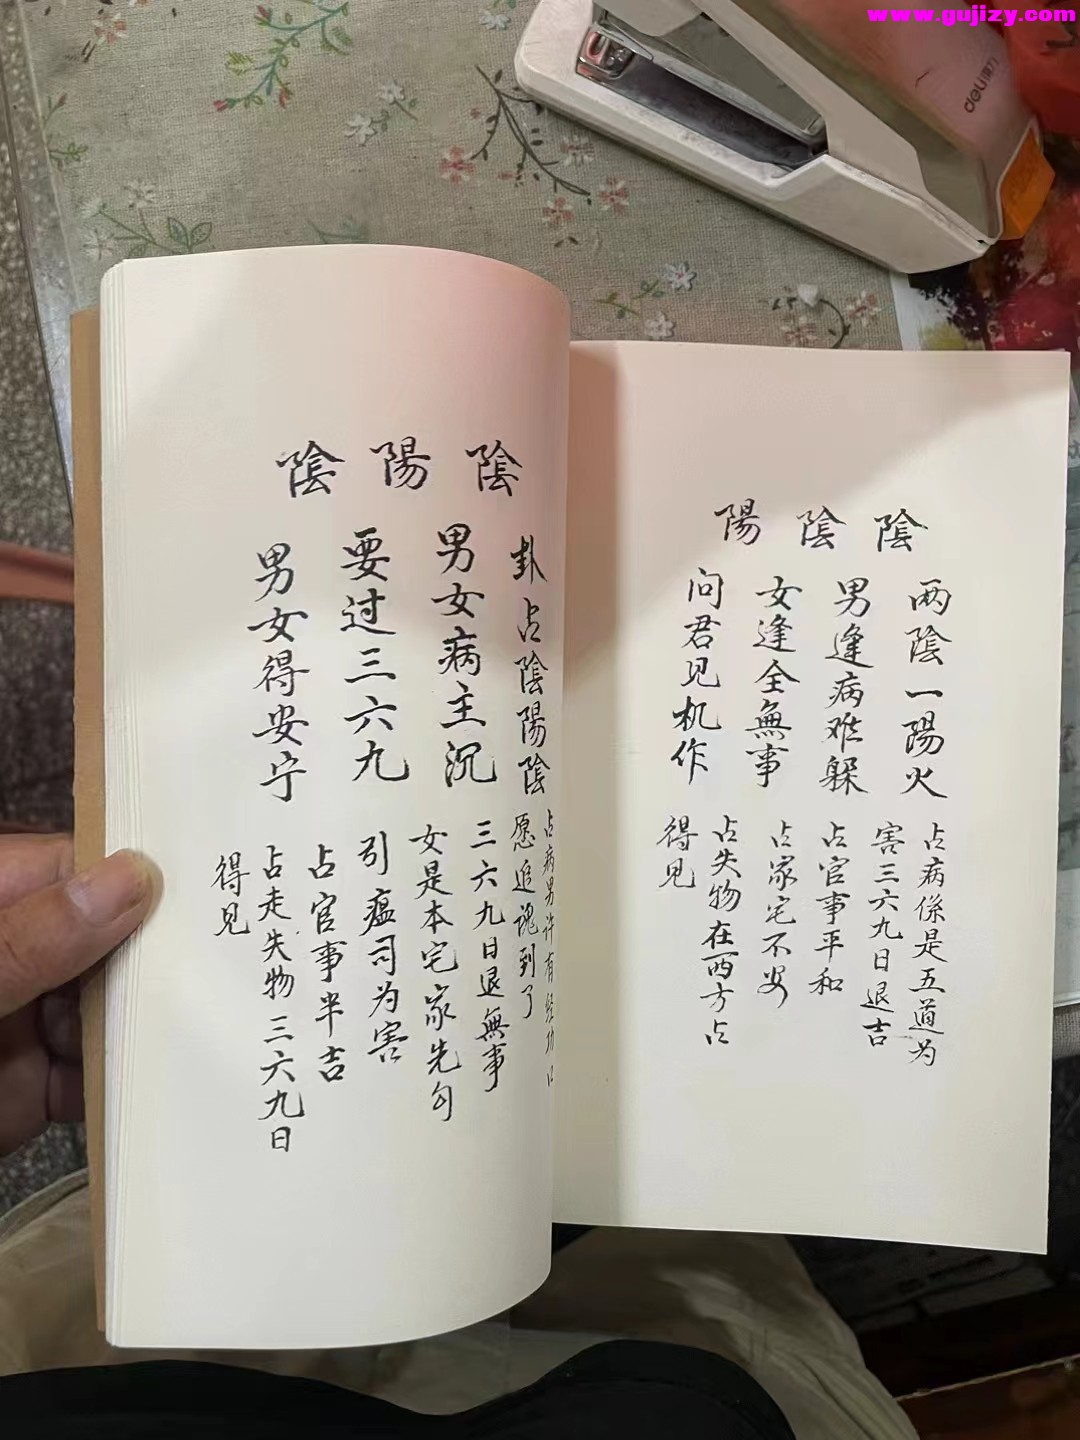 www.gujizy.com
deli得力
陰陰陽
两陰一陽火
男逢病难躲
女逢全無事
问君见机作
占病係是五道为
害三六九日退吉
占官事平和
占家宅不安
占失物在西方占
得见
陰陽陰
卦占陰陽陰
男女病主沉
要过三六九
男女得安宁
占病男许有经功口
愿追魂到了
三六九日退無事
女是本宅家先勾
引瘟司为害
占官事半吉
占走失物三六九日
得见